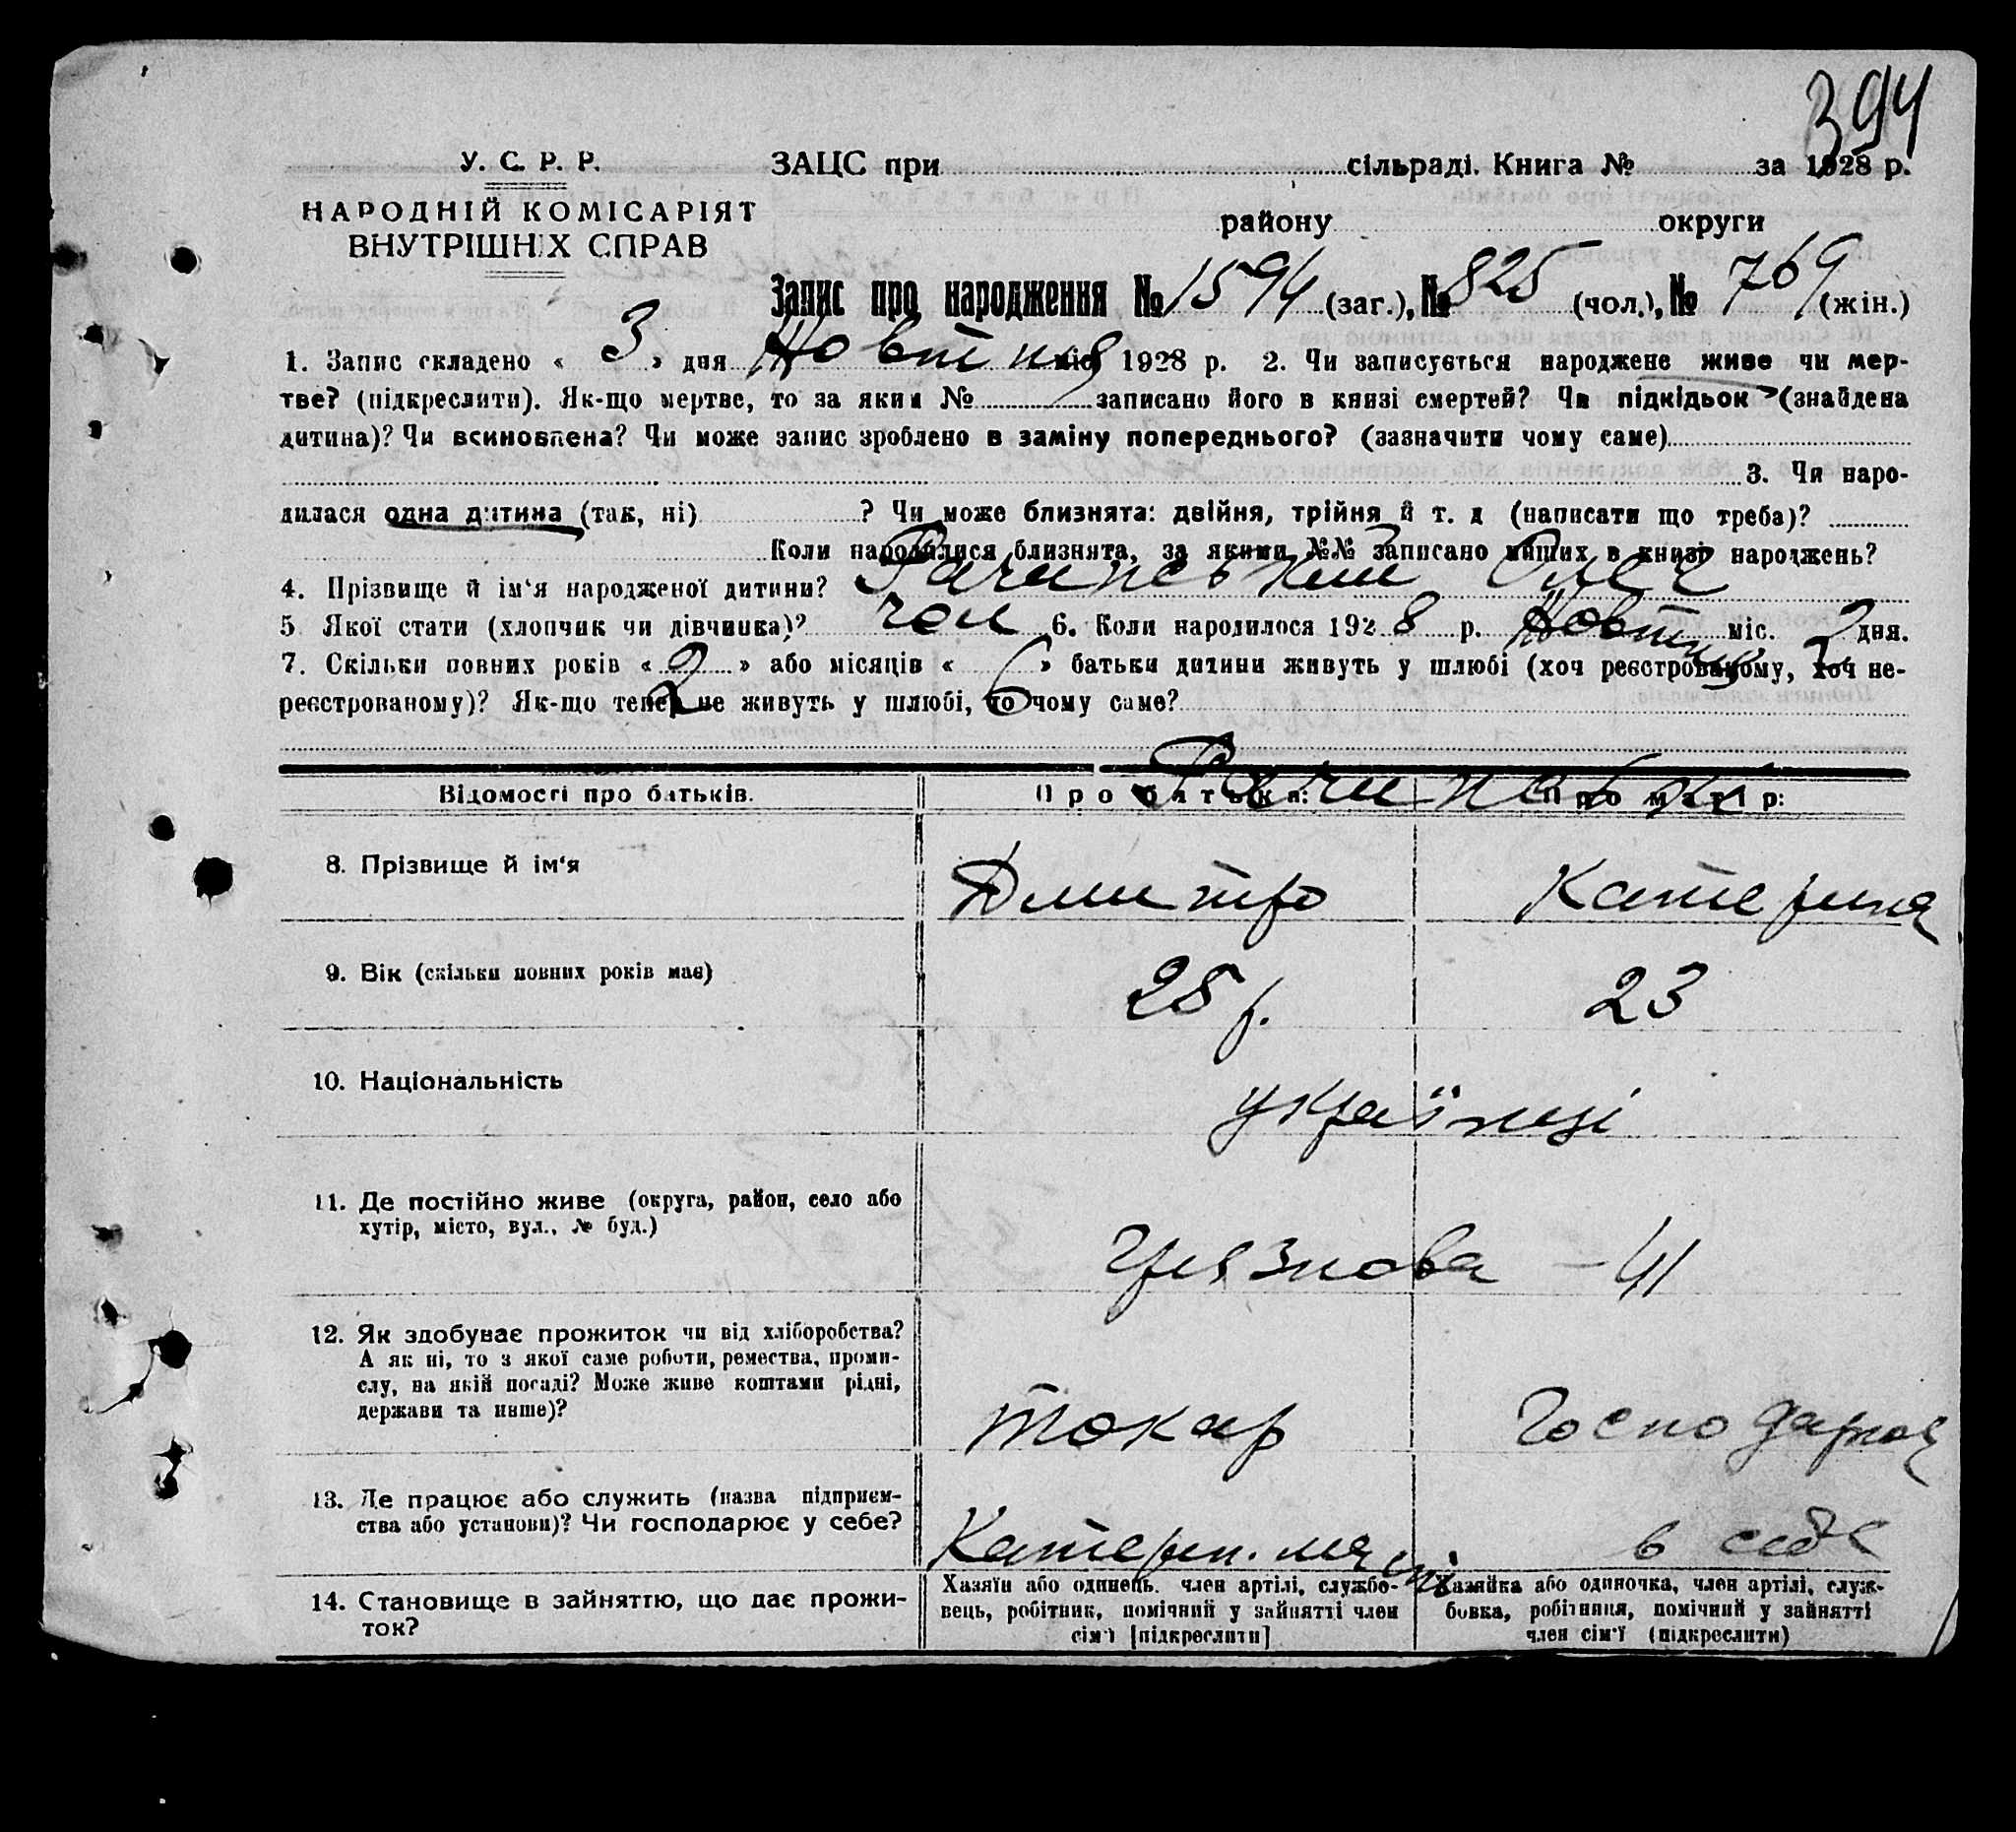 394
У. С. Р. Р. ЗАЦС при сільраді. Книга № за 1928 р.
НАРОДНІЙ КОМІСАРІЯТ
ВНУТРІШНІХ СПРАВ
району округи
Запис про народження № 1594 (заг.), № 825 (чол.), № 769 (жін.)
1. Запис складено « 3 » дня Новтня міс. 1928 р. 2. Чи записується народжене живе чи мер-
тве? (підкреслити). Як-що мертве, то за яким № записано його в книзі смертей? Чи підкідьок (знайдена
дитина)? Чи всиновлена? Чи може запис зроблено в заміну попереднього? (зазначити чому саме)
3. Чи наро-
дилася одна дитина (так, ні) ? Чи може близнята: двійня, трійня й т. д (написати що треба)?
Коли народилися близнята, за якими №№ записано инших в книзі народжень?
4. Прізвище й ім'я народженої дитини? Рачинський Олег
5 Якої стати (хлопчик чи дівчинка)? чол 6. Коли народилося 1928 р. Новтня міс. 2 дня.
7. Скільки повних років « 2 » або місяців « 6 » батьки дитини живуть у шлюбі (хоч реєстрованому, хоч не-
реєстрованому)? Як-що тепер не живуть у шлюбі, то чому саме?
2 6
Відомості про батьків. Про батька: Про матір:
Рачинські
8. Прізвище й ім'я Дмитро Катерина
9. Вік (скільки повних років має) 28 р. 23
10. Національність українці
11. Де постійно живе (округа, район, село або
хутір, місто, вул., № буд.)
Грязнова - 41
12. Як здобуває прожиток чи від хліборобства?
А як ні, то з якої саме роботи, ремества, проми-
слу, на якій посаді? Може живе коштами рідні,
держави та инше)?
токар Господарка
13. Де працює або служить (назва підприєм-
ства або установи)? Чи господарює у себе?
Катерин. майст в себе
14. Становище в зайняттю, що дає прожи-
ток?
Хазяїн або одинець. член артілі, службо-
вець, робітник, помічний у зайнятті член
сім'ї [підкреслити]
Хазяйка або одиночка, член артілі, служ-
бовка, робітниця, помічний у зайнятті
член сім'ї (підкреслити)